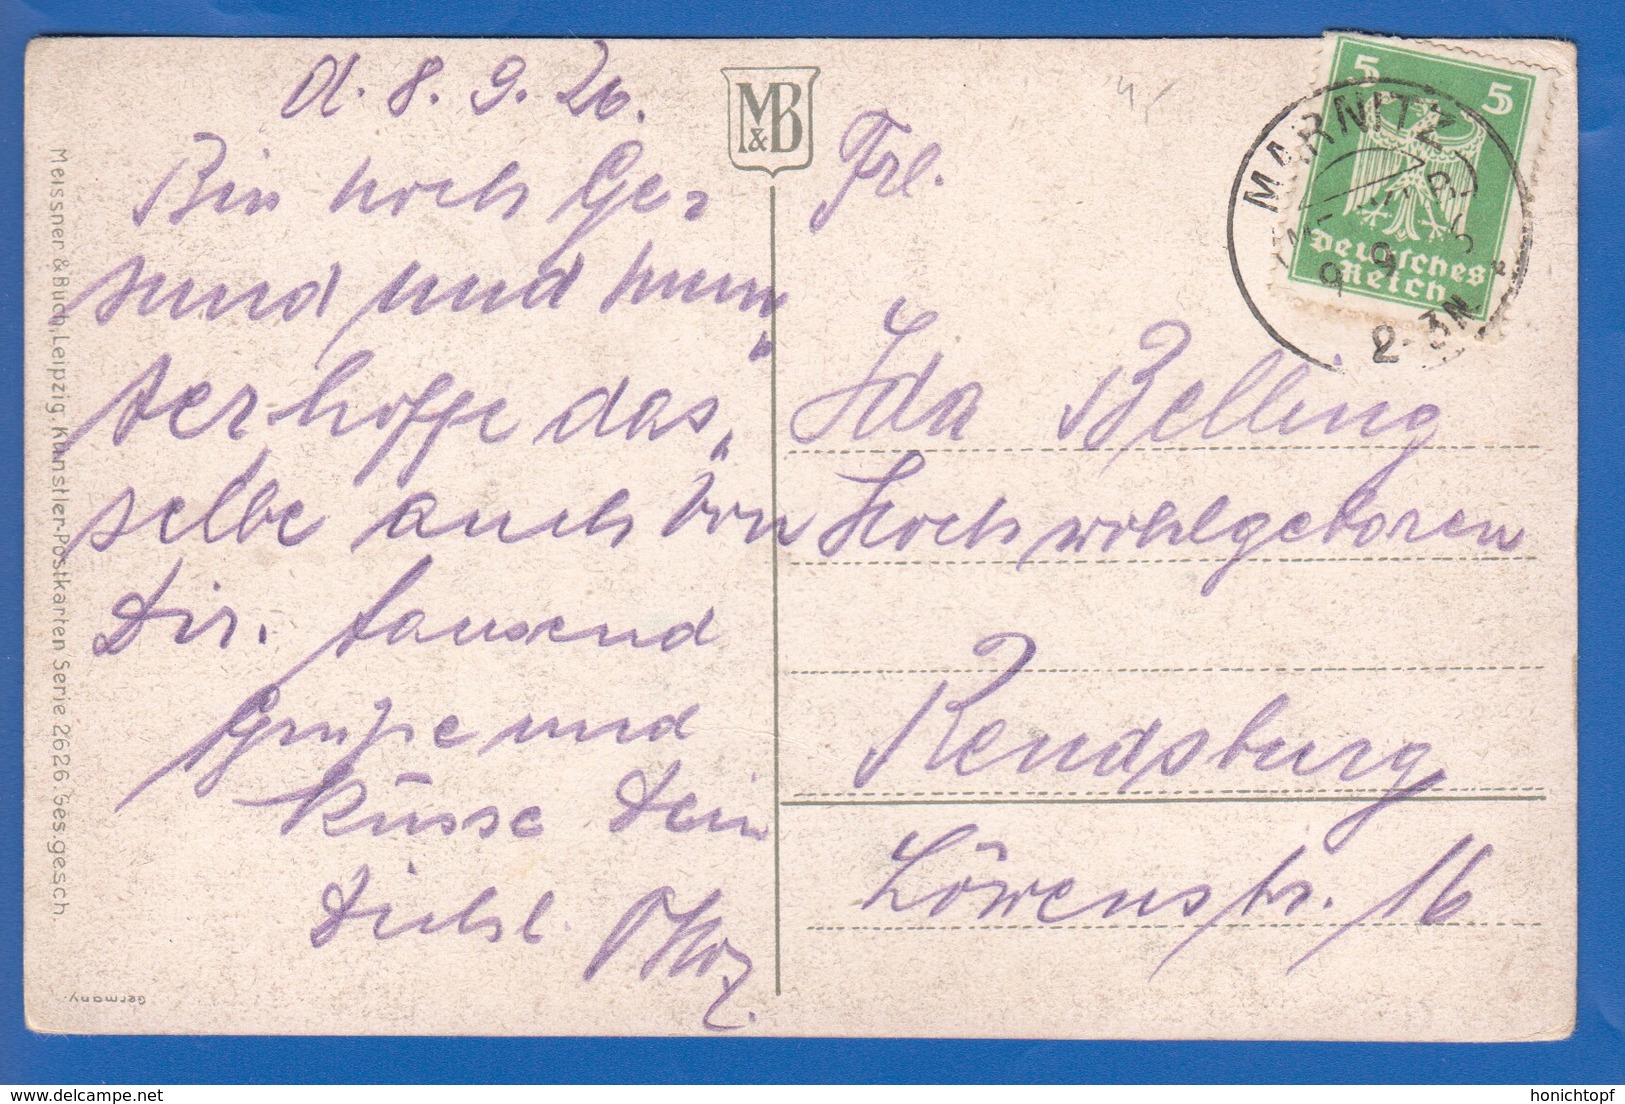 d. 8. 9. 26.
Bin noch Ge-
sund und mun„
ter hoffe das„
selbe auch von
Dir. tausend
Grüße und
küsse Dein
M&B
Frl.
Ida Belling
Hochwohlgeboren
Rendsburg
Löwenstr. 16
5 5
Deutsches
Reich
MARNITZ
9 9
2-3N
Meissner & Buch, Leipzig. Künstler-Postkarten Serie 2626. Ges.gesch.
Germany.
honichtopf